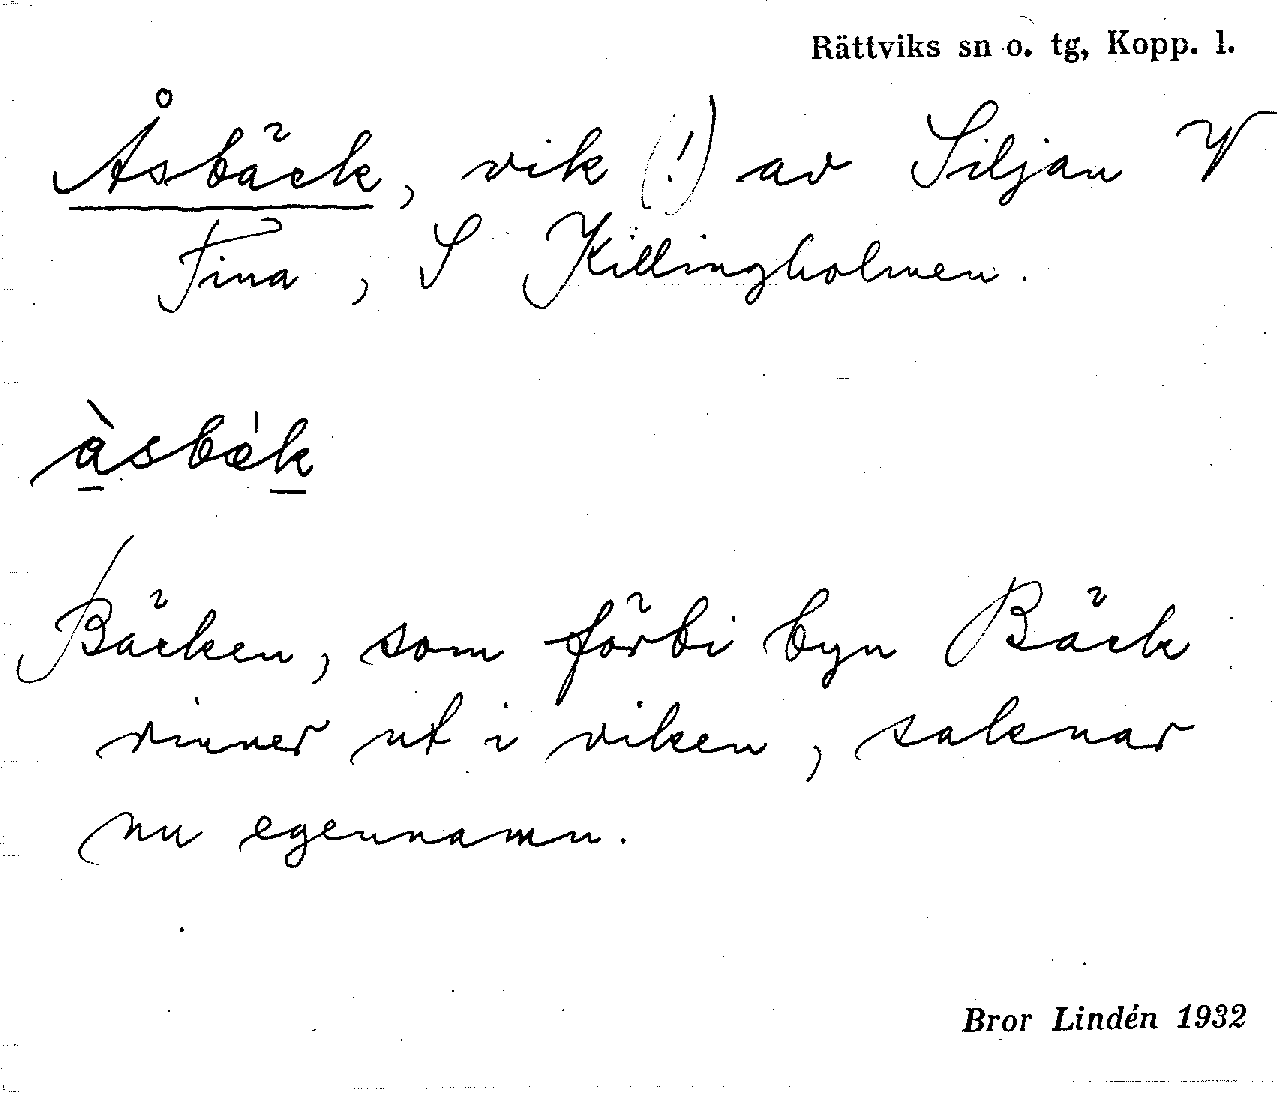 Rättviks sn o. tg, Kopp. l.
Åsbäck, vik (!) av Siljan V
Fina, S Killingholmen.
àsbæ̀k
Bäcken, som förbi byn Bäck
rinner ut i viken, saknar
nu egennamn.
Bror Lindén 1932